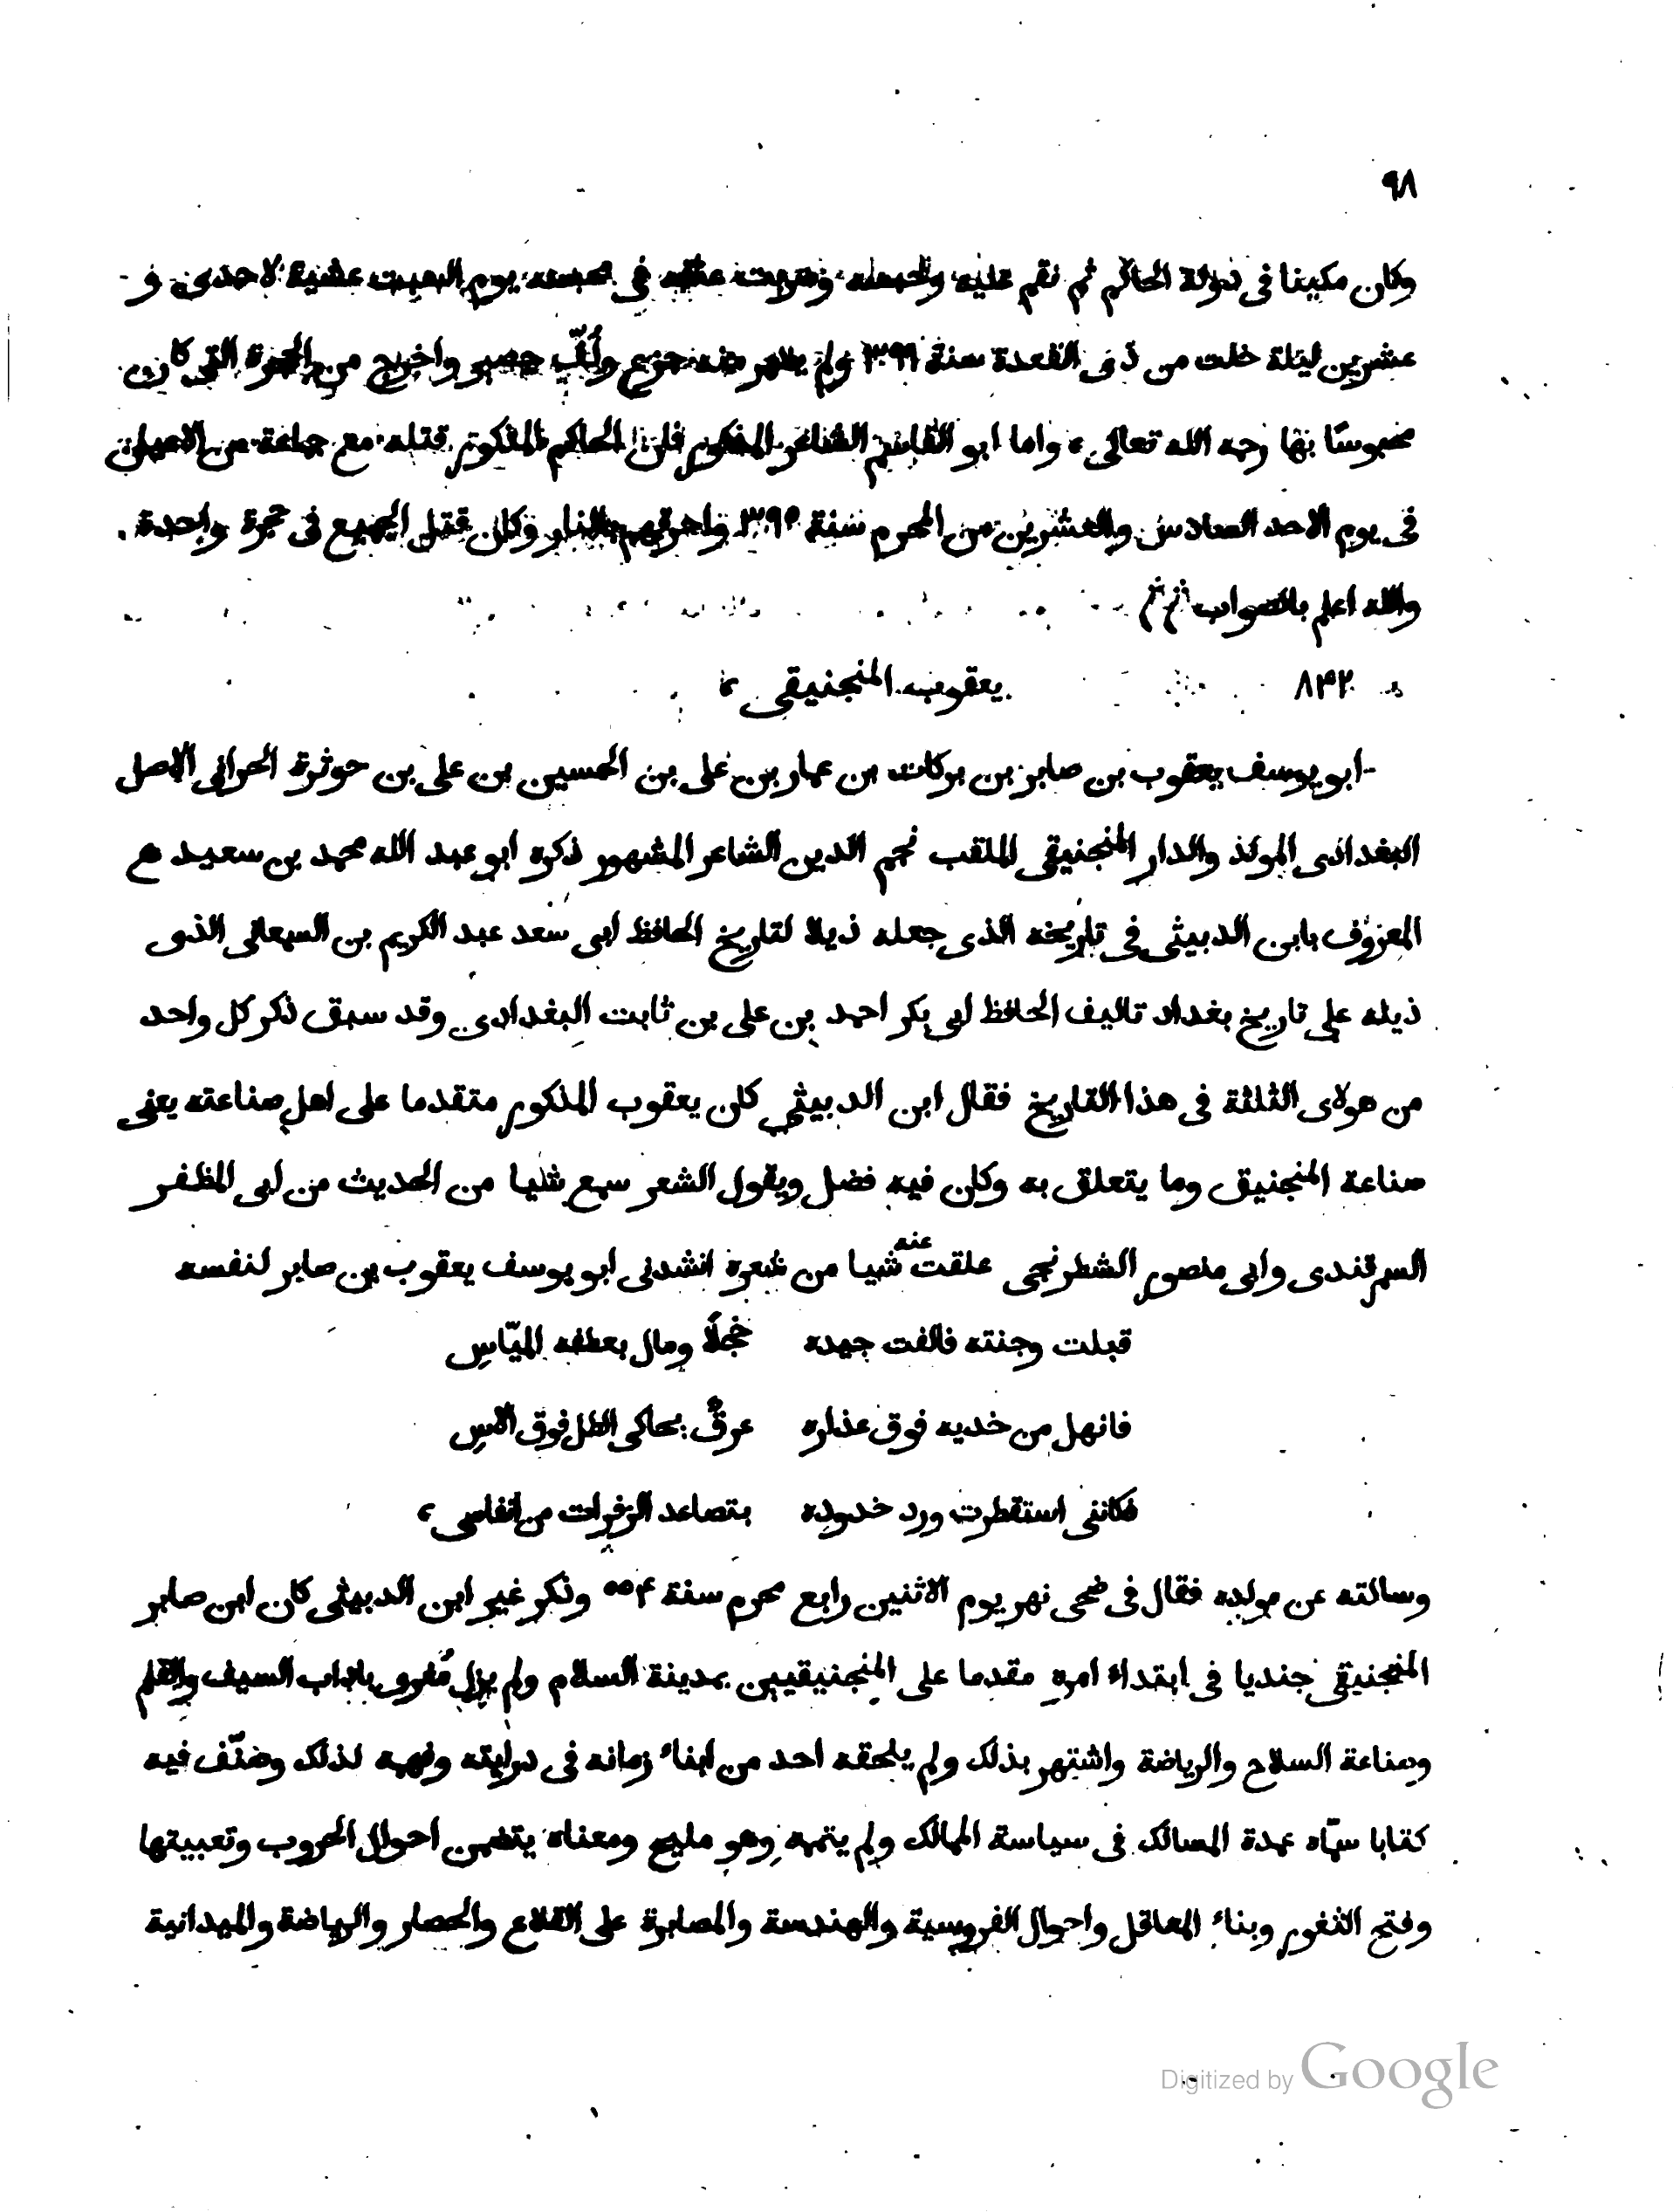 ٩٨
وكان مكينا فى دولة الحاكم ثم نقم عليه وحبسه وضربت عنقه فى محبسه يوم السبت عشية لاحدى و
عشرين ليلة خلت من ذى القعدة سنة ٣٩٩ ولم يظهر منه جزع ولُفّ واخرج من الحجرة التى كان
محبوسًا بها رحمه الله تعالى، واما ابو القاسم الشاعر المذكور فان الحاكم المذكور قتله مع جماعة من الاعيان
فى يوم الاحد السادس والعشرين من المحرم سنة ٣٩٥ واحرقهم بالنار وكان قتل الجميع فى حجرة واحدة
والله اعلم بالصواب
٨٤٢ يعقوب المنجنيقى،
ابو يوسف يعقوب بن صابر بن بركات بن عمار بن على بن الحسين بن على بن حوثرة الحرانى الاصل
البغدادى المولد والدار المنجنيقى الملقب نجم الدين الشاعر المشهور ذكره ابو عبد الله محمد بن سعيد
المعروف بابن الدبيثى فى تاريخه الذى جعله ذيلا لتاريخ الحافظ ابى سعد عبد الكريم بن السمعانى الذى
ذيله على تاريخ بغداد تاليف الحافظ ابى بكر احمد بن على بن ثابت البغدادى وقد سبق ذكر كل واحد
من هولاى الثلثة فى هذا التاريخ فقال ابن الدبيثى كان يعقوب المذكور متقدما على اهل صناعته يعنى
صناعة المنجنيق وما يتعلق به وكان فيه فضل ويقول الشعر سمع شيا من الحديث من ابى المظفر
السمرقندى وابى منصور الشطرنجى علقت عنه شيا من شعره انشدنى ابو يوسف يعقوب بن صابر لنفسه
قبلت وجنته فالفت جيده خجلًا ومال بعطفه الميّاسِ
فانهل من خديه فوق عذاره عرقٌ يحاكى الطل فوق الاسِ
فكاننى استقطرت ورد خدوده بتصاعد الزفرات من انفاسى،
وسالته عن مولده فقال فى ضحى نهر يوم الاثنين رابع محرم سنة ٥٥٤ وذكر غير ابن الدبيثى كان ابن صابر
المنجنيقى جنديا فى ابتداء امره مقدما على المنجنيقيين بمدينة السلام ولم يزل مُغرى باداب السيف والقلم
وصناعة السلاح والرياضة واشتهر بذلك ولم يلحقه احد من ابناء زمانه فى درايته وفهمه لذلك وصنّف فيه
كتابا سمّاه عمدة المسالك فى سياسة الممالك ولم يتمه وهو مليح ومعناه يتضمن احوال الحروب وتعبيتها
وفتح الثغور وبناء المعاقل واحوال الفروسية والهندسة والمصابرة على القلاع والحصار والرياضة والميدانية
Digitized by Google